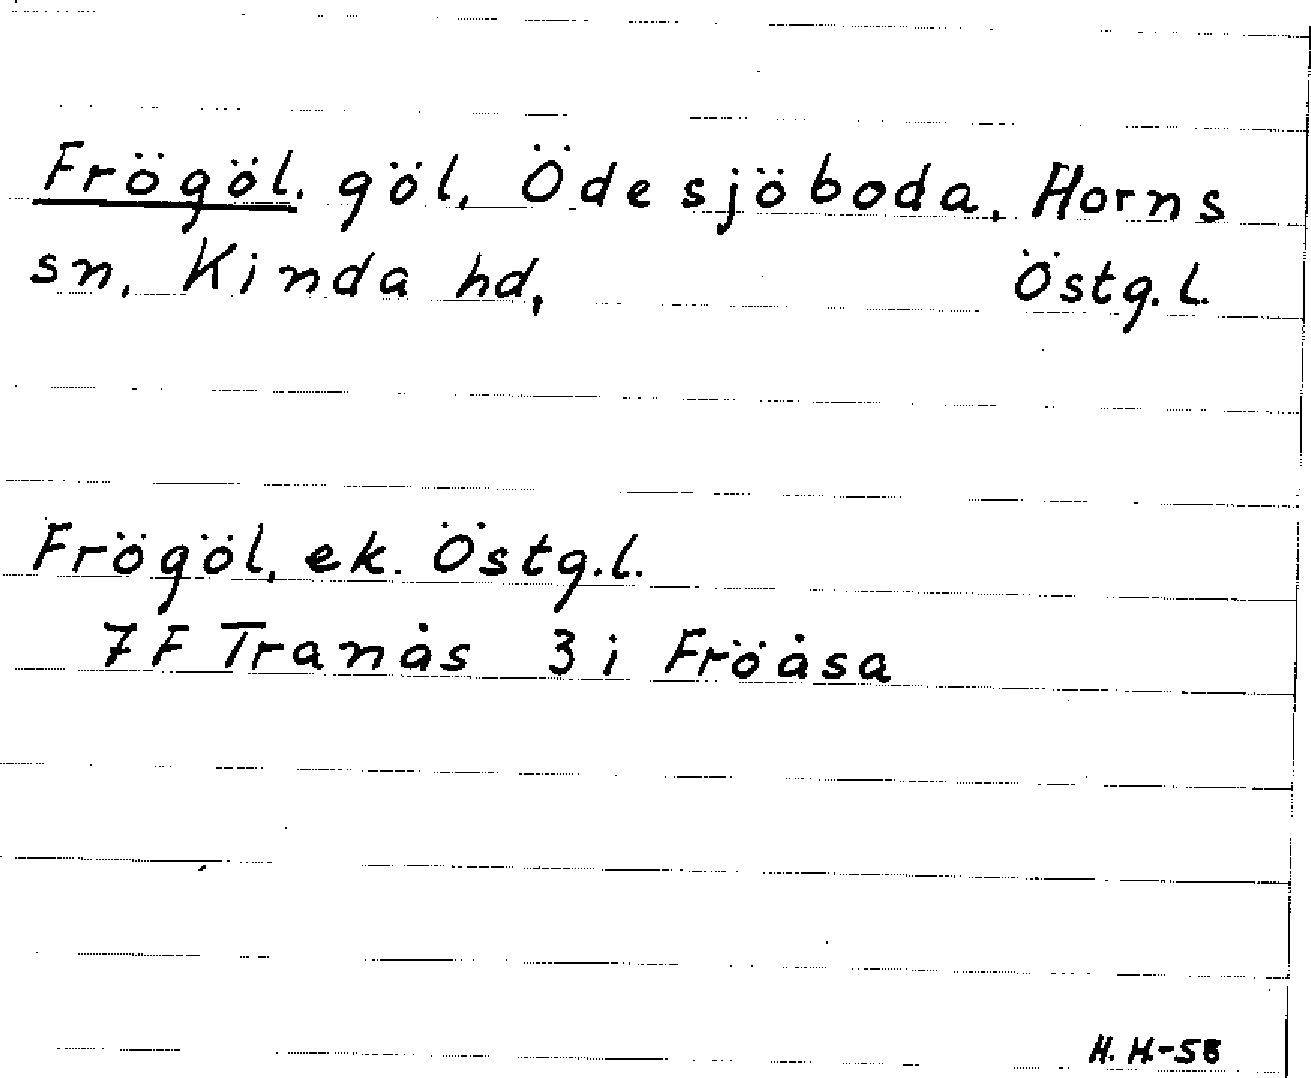 Frögöl. göl, Ödesjöboda, Horns
sn, Kinda hd, Östg.l.
Frögöl, ek. Östg.l.
7F Tranås 3i Fröåsa
H. H-58